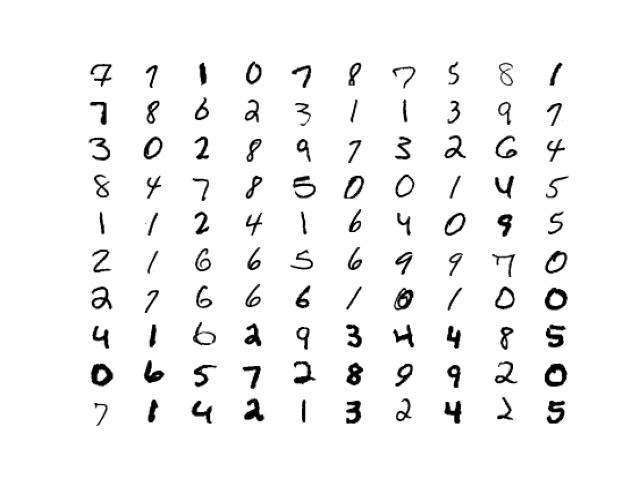 7 7 1 0 7 8 7 5 8 1
7 8 6 2 3 1 1 3 9 7
3 0 2 8 9 7 3 2 6 4
8 4 7 8 5 0 0 1 4 5
1 1 2 4 1 6 4 0 9 5
2 1 6 6 5 6 9 9 7 0
2 7 6 6 6 1 0 1 0 0
4 1 6 2 9 3 4 4 8 5
0 6 5 7 2 8 9 9 2 0
7 1 4 2 1 3 2 4 2 5